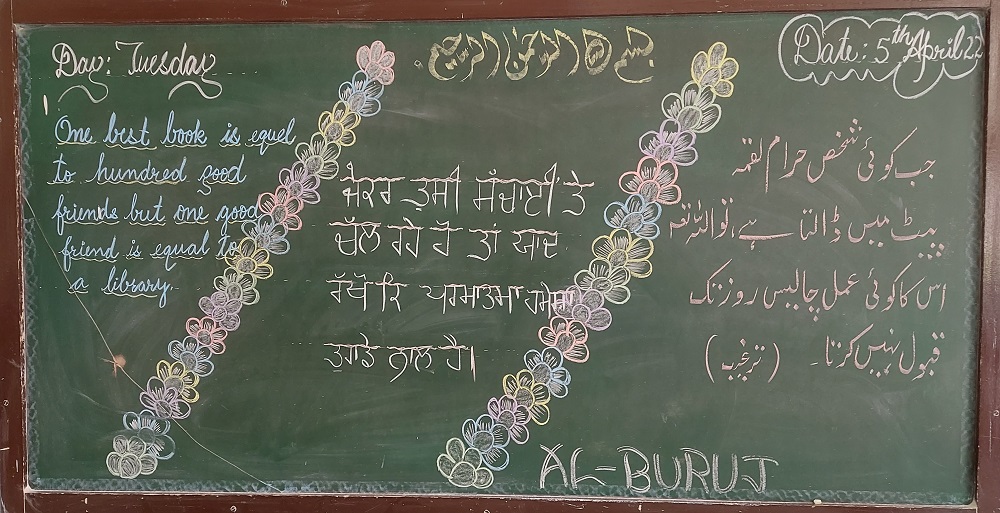 Day: Tuesday
بسم الله الرحمن الرحيم
Date: 5th April 22
One best book is equel
to hundred good
friends but one good
friend is equal to
a library.
ਜੇਕਰ ਤੁਸੀ ਸੱਚਾਈ ਤੇ
ਚੱਲ ਰਹੇ ਹੋ ਤਾਂ ਯਾਦ
ਰੱਖੋ ਕਿ ਪਰਮਾਤਮਾ ਹਮੇਸ਼ਾ
ਤੁਹਾਡੇ ਨਾਲ ਹੈ।
جب کوئی شخص حرام لقمہ
پیٹ میں ڈالتا ہے، تو اللہ تعالیٰ
اس کا کوئی عمل چالیس روز تک
قبول نہیں کرتا۔ (ترغیب)
AL-BURUJ